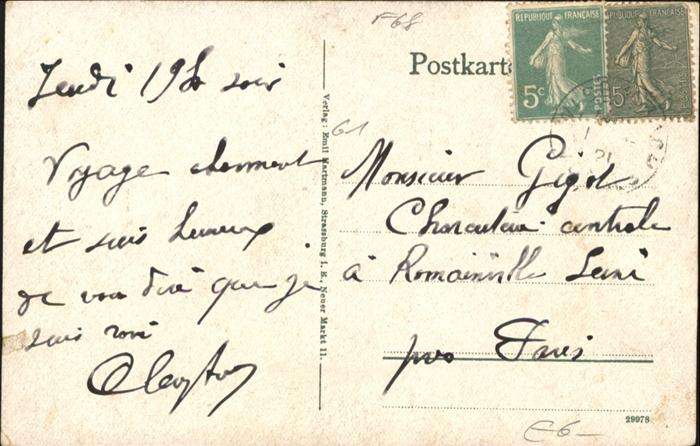 F68
Jeudi 19h soir
Voyage charmant
et suis heureux
de vous dire que je
suis ravi
Postkarte
RÉPUBLIQUE FRANÇAISE
5c
RÉPUBLIQUE FRANÇAISE
15c
Verlag: Emil Hartmann, Strassburg i. E. Neuer Markt 11.
G1
Monsieur Gigot
Charcuterie centrale
à Romainville Seine
près Paris
29978
E6-